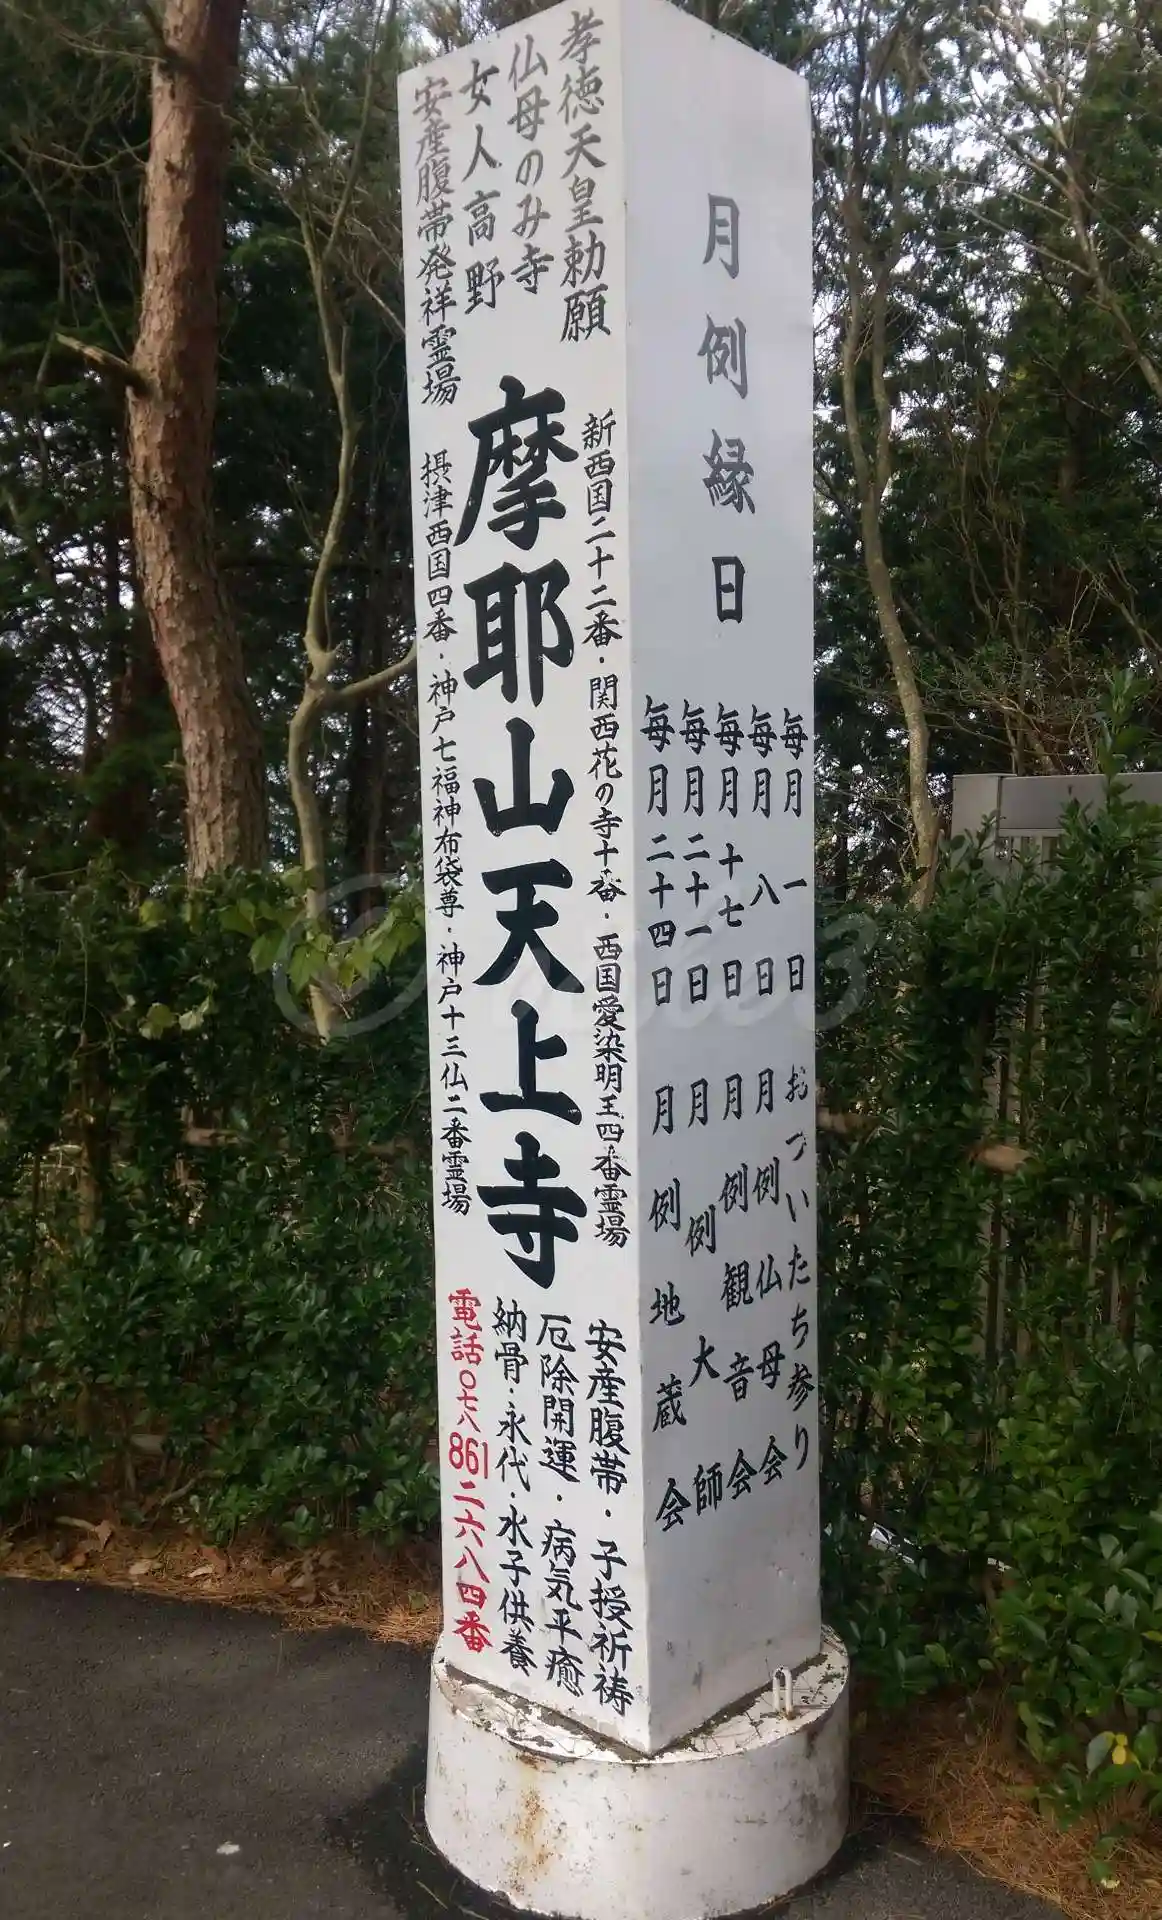 孝徳天皇勅願
仏母のみ寺
女人高野
安産腹帯発祥霊場
新西国二十二番・関西花の寺十番・西国愛染明王四番霊場
摩耶山天上寺
摂津西国四番・神戸七福神布袋尊・神戸十三仏二番霊場
安産腹帯・子授祈祷
厄除開運・病気平癒
納骨・永代・水子供養
電話〇七八861二六八四番
月例縁日
毎月一日おついたち参り
毎月八日月例仏母会
毎月十七日月例観音会
毎月二十一日月例大師
毎月二十四日月例地蔵会